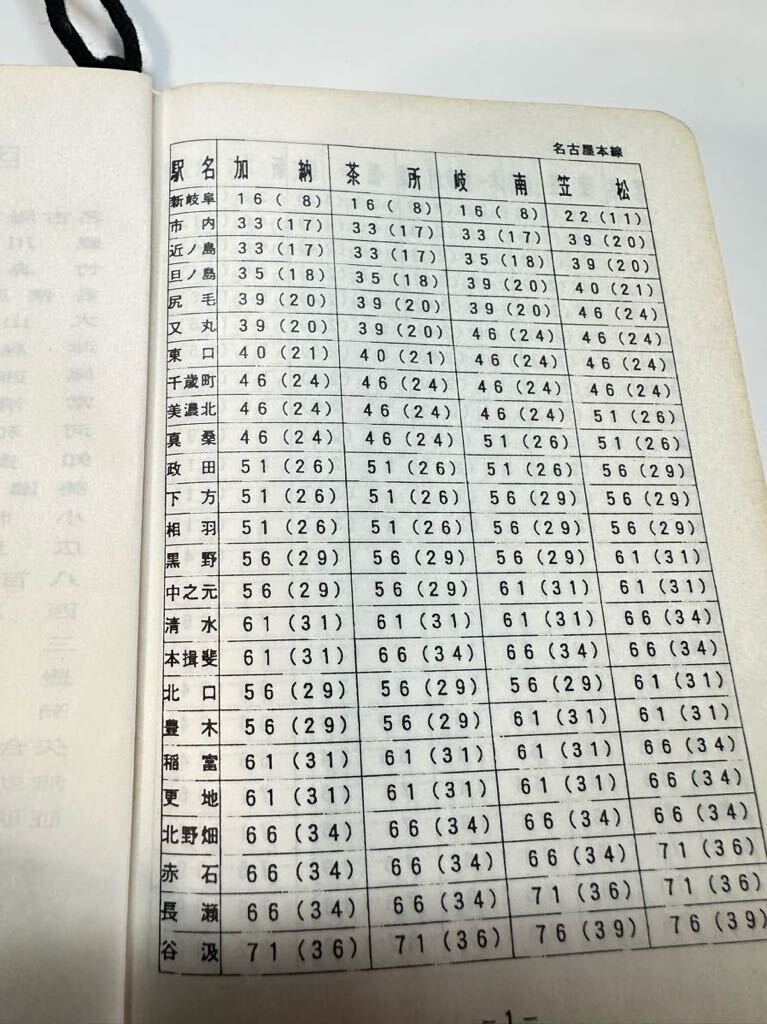 名古屋本線
駅名 加納 茶所 岐南 笠松
新岐阜 16(8) 16(8) 16(8) 22(11)
市内 33(17) 33(17) 33(17) 39(20)
近ノ島 33(17) 33(17) 35(18) 39(20)
旦ノ島 35(18) 35(18) 39(20) 40(21)
尻毛 39(20) 39(20) 39(20) 46(24)
又丸 39(20) 39(20) 46(24) 46(24)
東口 40(21) 40(21) 46(24) 46(24)
千歳町 46(24) 46(24) 46(24) 46(24)
美濃北 46(24) 46(24) 46(24) 51(26)
真桑 46(24) 46(24) 51(26) 51(26)
政田 51(26) 51(26) 51(26) 56(29)
下方 51(26) 51(26) 56(29) 56(29)
相羽 51(26) 51(26) 56(29) 56(29)
黒野 56(29) 56(29) 56(29) 61(31)
中之元 56(29) 56(29) 61(31) 61(31)
清水 61(31) 61(31) 61(31) 66(34)
本揖斐 61(31) 66(34) 66(34) 66(34)
北口 56(29) 56(29) 56(29) 61(31)
豊木 56(29) 56(29) 61(31) 61(31)
稲富 61(31) 61(31) 61(31) 66(34)
更地 61(31) 61(31) 61(31) 66(34)
北野畑 66(34) 66(34) 66(34) 66(34)
赤石 66(34) 66(34) 66(34) 71(36)
長瀬 66(34) 66(34) 71(36) 71(36)
谷汲 71(36) 71(36) 76(39) 76(39)
-1-